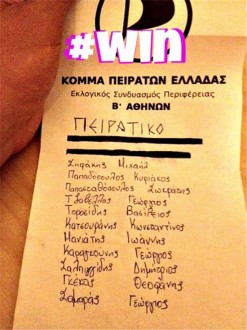 #win
ΚΟΜΜΑ ΠΕΙΡΑΤΩΝ ΕΛΛΑΔΑΣ
Εκλογικός Συνδυασμός Περιφέρειας
Β' ΑΘΗΝΩΝ
ΠΕΙΡΑΤΙΚΟ
Σηφάκης Μιχαήλ
Παπαδόπουλος Κυριάκος
Παπασταθόπουλος Σωκράτης
Τζαβέλλας Γεώργιος
Τοροσίδης Βασίλειος
Κατσουράνης Κωνσταντίνος
Μανιάτης Ιωάννης
Καραγκούνης Γεώργιος
Σαλπιγγίδης Δημήτριος
Γκέκας Θεοφάνης
Σαμαράς Γεώργιος